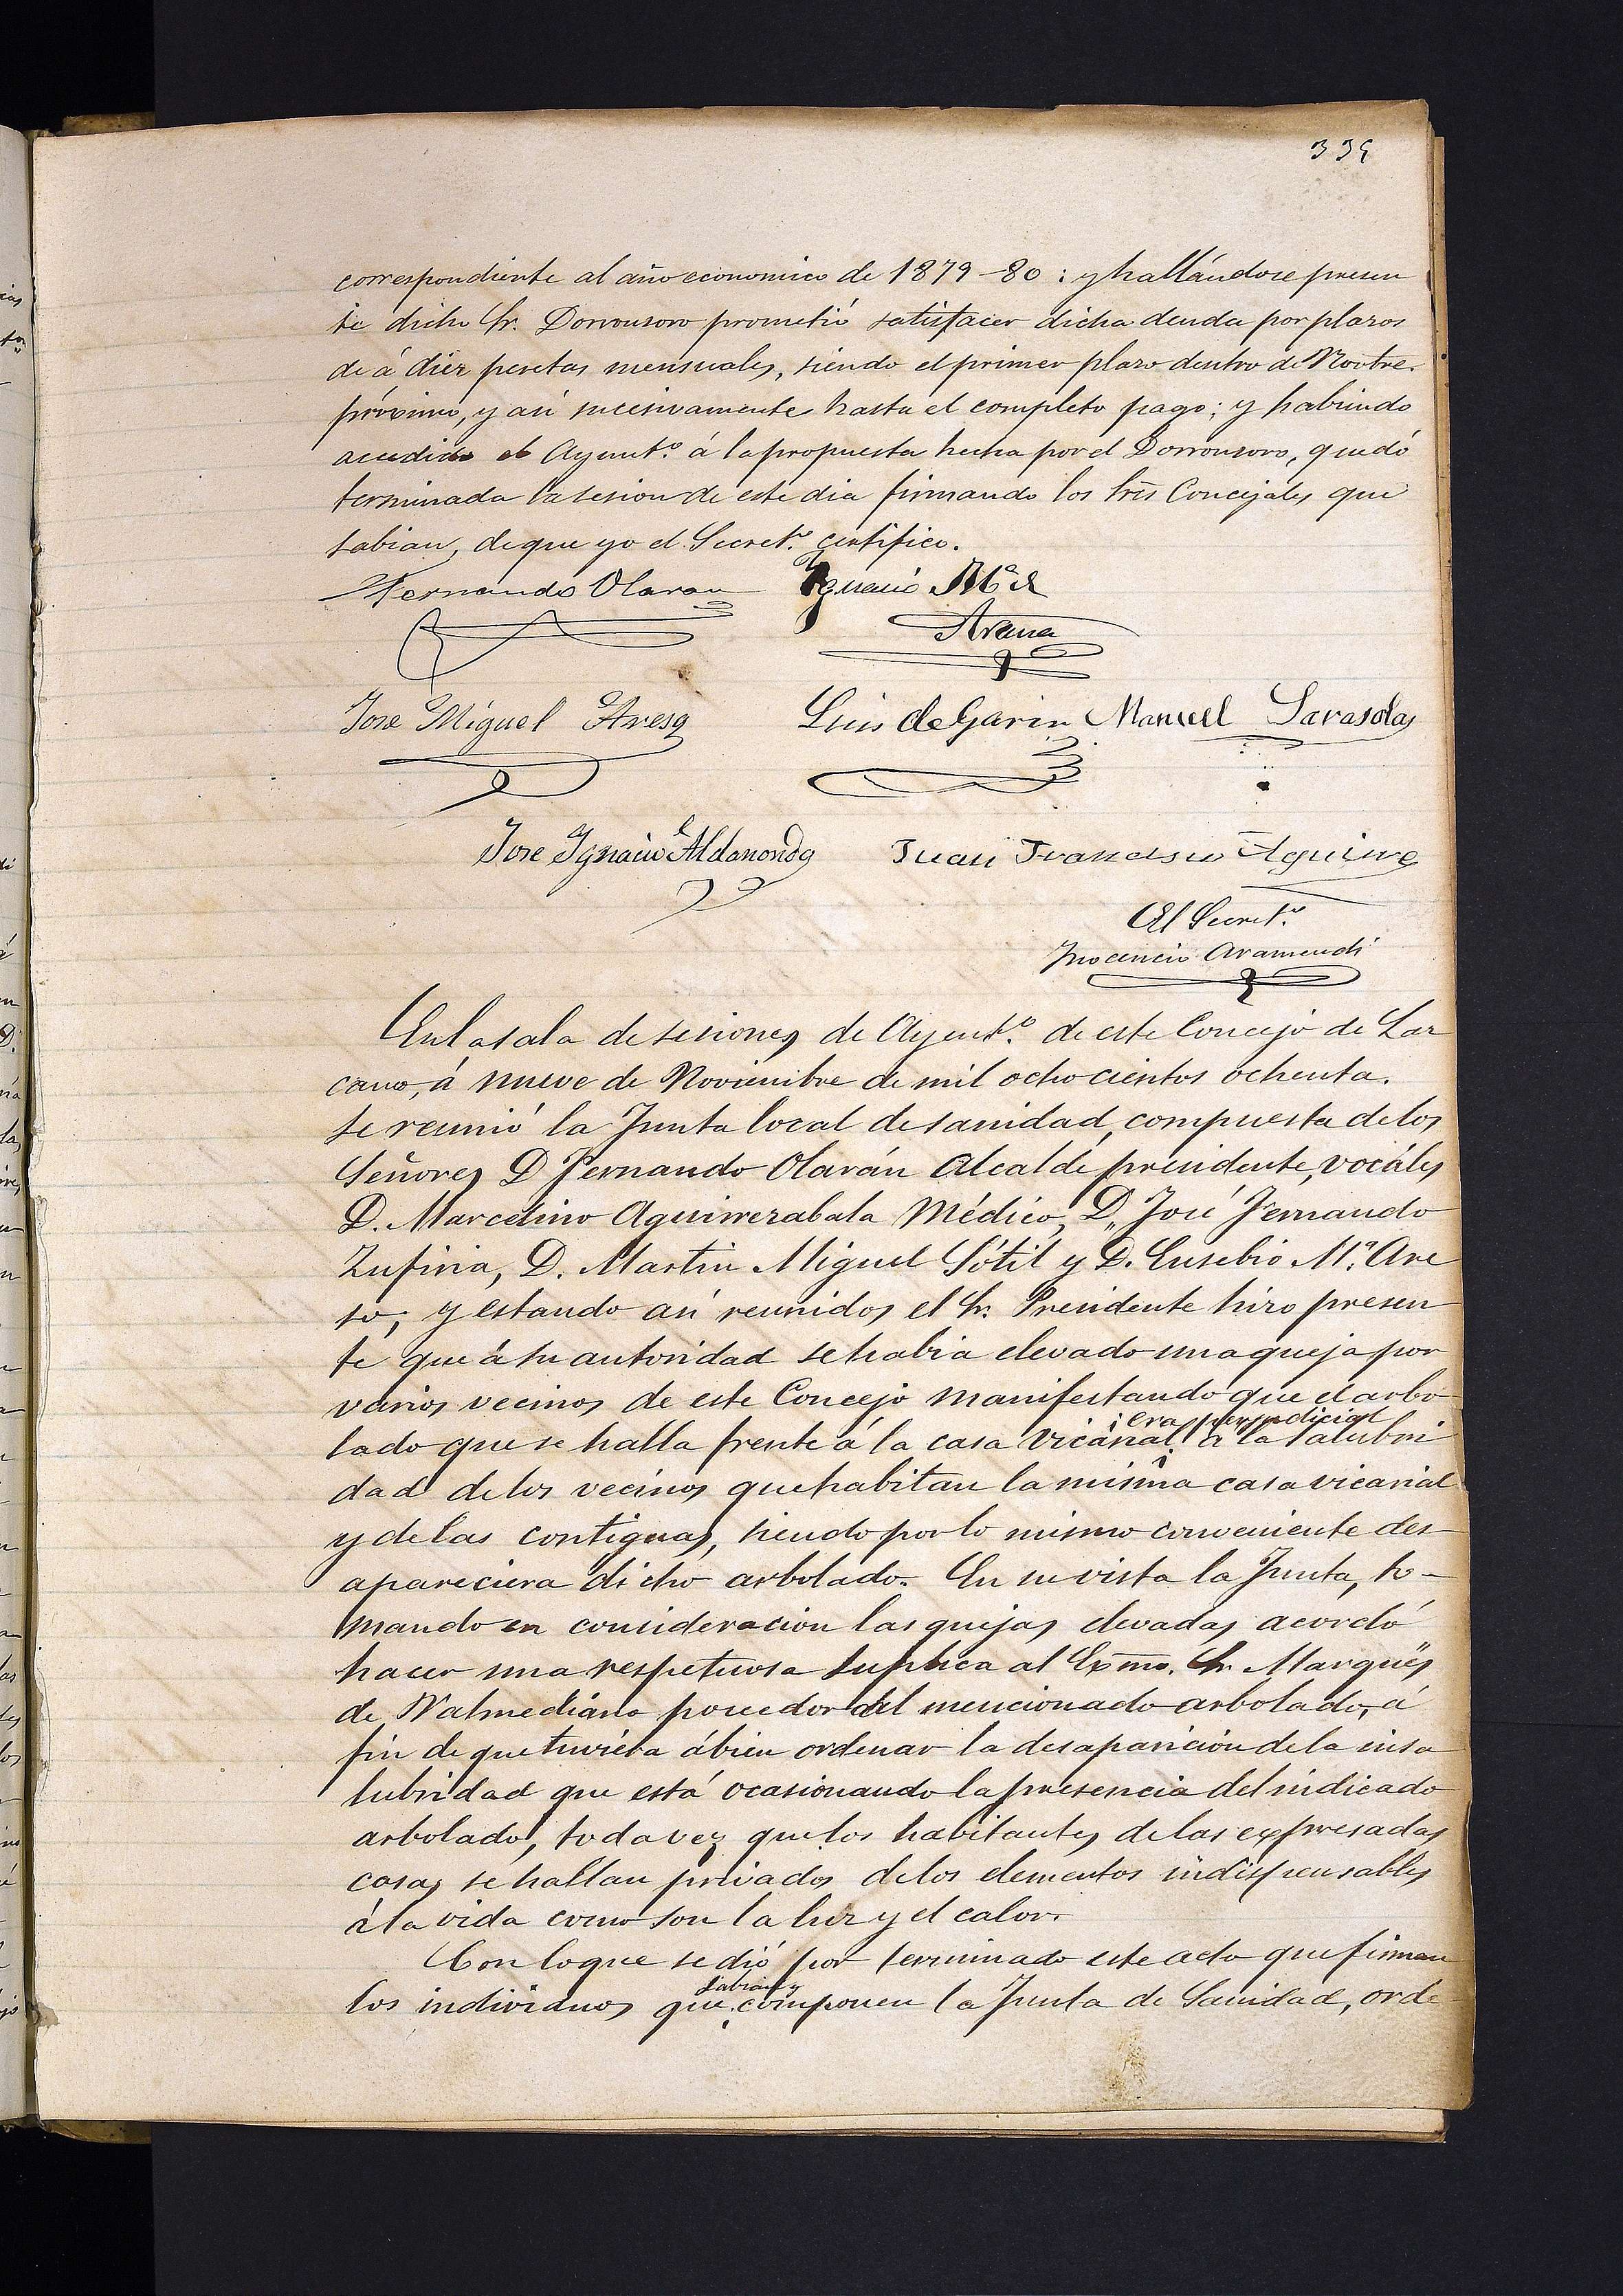 339
correspondiente al año economico de 1879-80: y hallándose presen
te dicho Sr. Dorronsoro prometió satisfacer dicha deuda por plazos
de á diez pesetas mensuales, siendo el primer plazo dentro de Novbre.
próximo, y asi sucesivamente hasta el completo pago; y habiendo
accedido el Ayunt.º á la propuesta hecha por el Dorronsoro, quedó
terminada la sesion de este dia firmando los Sres Concejales que
sabian, de que yo el Secret.º certifico.
Fernando Olaran Ignacio Mª de
Arana
Jose Miguel Areso Luis de Garin Manuel Sarasola
Jose Ignacio Aldanondo Juan Francisco Aguirre
El Secret.º
Inocencio Aramendi
En la sala de sesiones de Ayunt.º de este Concejo de Laz
cano, á nueve de Noviembre de mil ochocientos ochenta.
se reunió la Junta local de sanidad, compuesta de los
Señores D Fernando Olarán Alcalde presidente, vocáles
D. Marcelino Aguirrezabala Médico, D. José Fernando
Zufiria, D. Martin Miguel Sótil y D. Eusebio M.ª Are
so; y estando asi reunidos el Sr. Presidente hizo presen
te que á su autoridad se habia elevado una queja por
varios vecinos de este Concejo manifestando que el arbo
era perjudicial
lado que se halla frente á la casa vicarial á la salubri
dad de los vecinos que habitan la misma casa vicarial
y de las contiguas, siendo por lo mismo conveniente des
apareciera dicho arbolado. En su vista la Junta, to-
mando en consideracion las quejas elevadas acordó
hacer una respetuosa suplica al Exmo. Sr. Marqués
de Valmediano poseedor del mencionado arbolado, á
fin de que tuviera á bien ordenar la desaparición de la insa
lubridad que está ocasionando la presencia del indicado
arbolado, toda vez que los habitantes de las expresadas
casas se hallan privados de los elementos indispensables
á la vida como son la luz y el calor.
Con lo que se dió por terminado este acto que firman
sabian y
los individuos que componen la Junta de Sanidad, orde